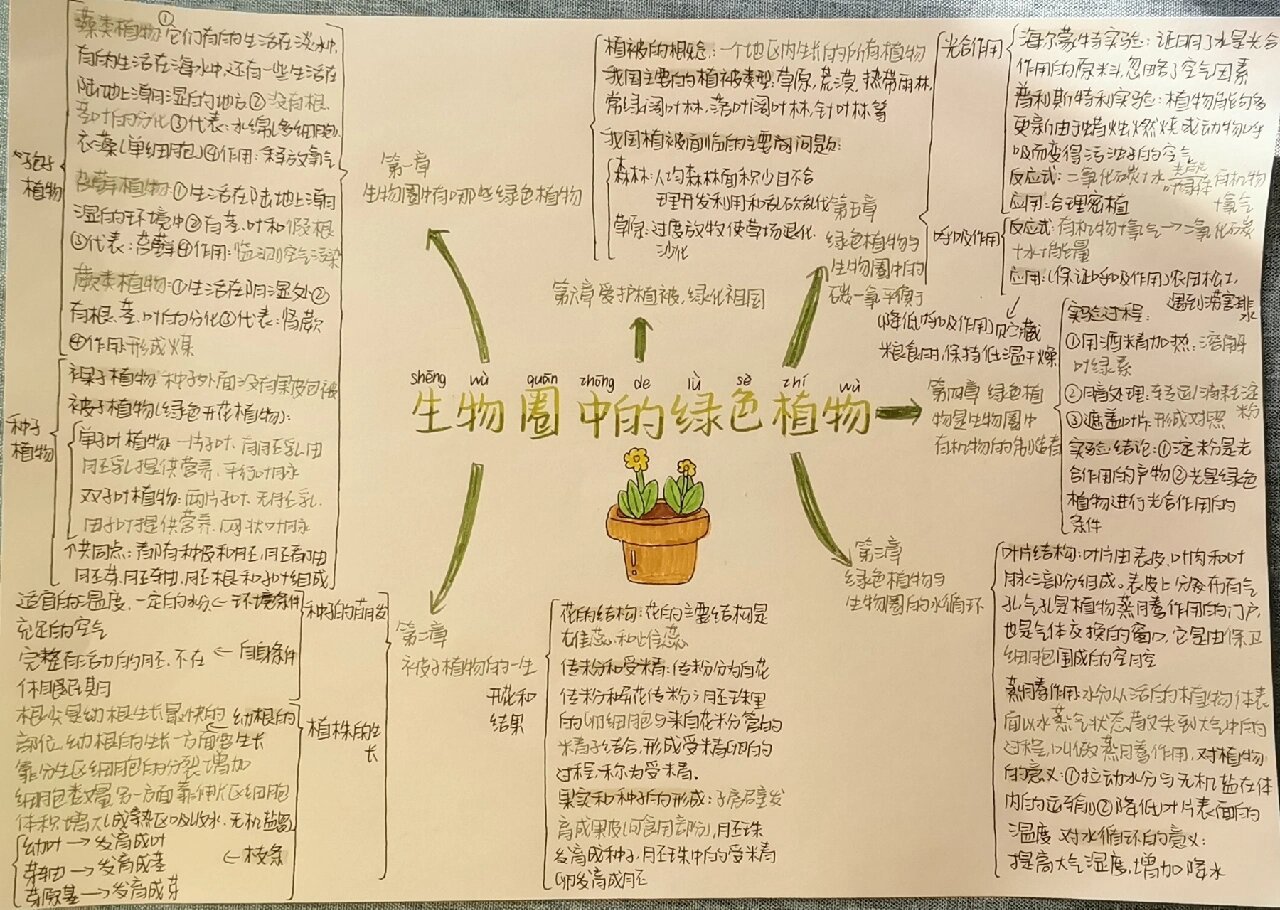 shēng wù quān zhōng de lǜ sè zhí wù
生物圈中的绿色植物
第一章
生物圈中有哪些绿色植物
孢子
植物
藻类植物:①它们有的生活在淡水中,
有的生活在海水中,还有一些生活在
陆地上潮湿的地方②没有根、
茎、叶的分化③代表:水绵(多细胞)、
衣藻(单细胞)④作用:释放氧气
苔藓植物:①生活在阴地上潮
湿的环境中②有茎、叶和假根
③代表:苔藓④作用:监测空气污染
蕨类植物:①生活在阴湿处②
有根、茎、叶的分化③代表:肾蕨
④作用:形成煤
种子
植物
裸子植物:种子外面没有果皮包被
被子植物(绿色开花植物):
单子叶植物:一片子叶、有胚乳由
胚乳提供营养、平行叶脉
双子叶植物:两片子叶、无胚乳、
由子叶提供营养、网状叶脉
个共同点:都有种皮和胚,胚都由
胚芽、胚轴、胚根和子叶组成
第二章
被子植物的一生
种子的萌发
适宜的温度、一定的水分、←环境条件
充足的空气
完整有活力的胚、不在 ←自身条件
休眠期
植株的生
长
根尖是幼根生长最快的 ←幼根的
部位,幼根的生长一方面要生长
靠分生区细胞的分裂增加
细胞数量另一方面靠伸长区细胞
体积增大(成熟区吸收水、无机盐)
幼叶→发育成叶
芽轴→发育成茎 ←枝条
芽原基→发育成芽
开花和
结果
花的结构:花的主要结构是
雄蕊和雌蕊
传粉和受精:传粉分为自花
传粉和异花传粉;胚珠里
的卵细胞与来自花粉管的
精子结合,形成受精卵的
过程,称为受精。
果实和种子的形成:子房壁发
育成果皮(可食用部分),胚珠
发育成种子,胚珠中的受精
卵发育成胚
第三章
绿色植物与
生物圈的水循环
叶片结构:叶片由表皮、叶肉和叶
脉三部份组成。表皮上分布有气
孔气孔是植物蒸腾作用的门户,
也是气体交换的窗口,它是由保卫
细胞围成的空腔
蒸腾作用:水分从活的植物体表
面以水蒸气状态散失到大气中的
过程,叫做蒸腾作用,对植物
的意义:①拉动水分与无机盐在体
内的运输②降低叶片表面的
温度 对水循环的意义:
提高大气湿度,增加降水
第四章 绿色植
物是生物圈中
有机物的制造者
实验过程:
①用酒精加热:溶解
叶绿素
②暗处理:转运/消耗淀
粉
③遮盖叶片:形成对照
实验结论:①淀粉是光
合作用的产物②光是绿色
植物进行光合作用的
条件
第五章
绿色植物与
生物圈中的
碳—氧平衡
光合作用
海尔蒙特实验:证明了水是光合
作用的原料,忽略了空气因素
普利斯特利实验:植物能够
更新由于蜡烛燃烧或动物呼
吸而变得污浊的空气
反应式:二氧化碳+水 光能 叶绿体 有机物
+氧气
应用:合理密植
呼吸作用
反应式:有机物+氧气→二氧化碳
+水+能量
应用:(保证呼吸作用)农田松土,
遇到涝害排
(降低呼吸作用)贮藏
粮食时,保持低温干燥
第六章 爱护植被,绿化祖国
植被的概念:一个地区内生长的所有植物
我国主要的植被类型:草原、荒漠、热带雨林、
常绿阔叶林、落叶阔叶林、针叶林等
我国植被面临的主要问题:
森林:人均森林面积少且不合
理开发利用和乱砍乱伐
草原:过度放牧使草场退化、
沙化